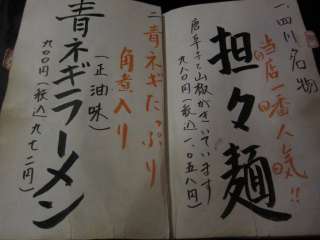 一、四川名物
当店一番人気!!
担々麺
唐辛子と山椒がきいています
九八〇円(税込一、〇五八円)
二、青ネギたっぷり
角煮入り
青ネギラーメン
(正油味)
九〇〇円(税込九七二円)